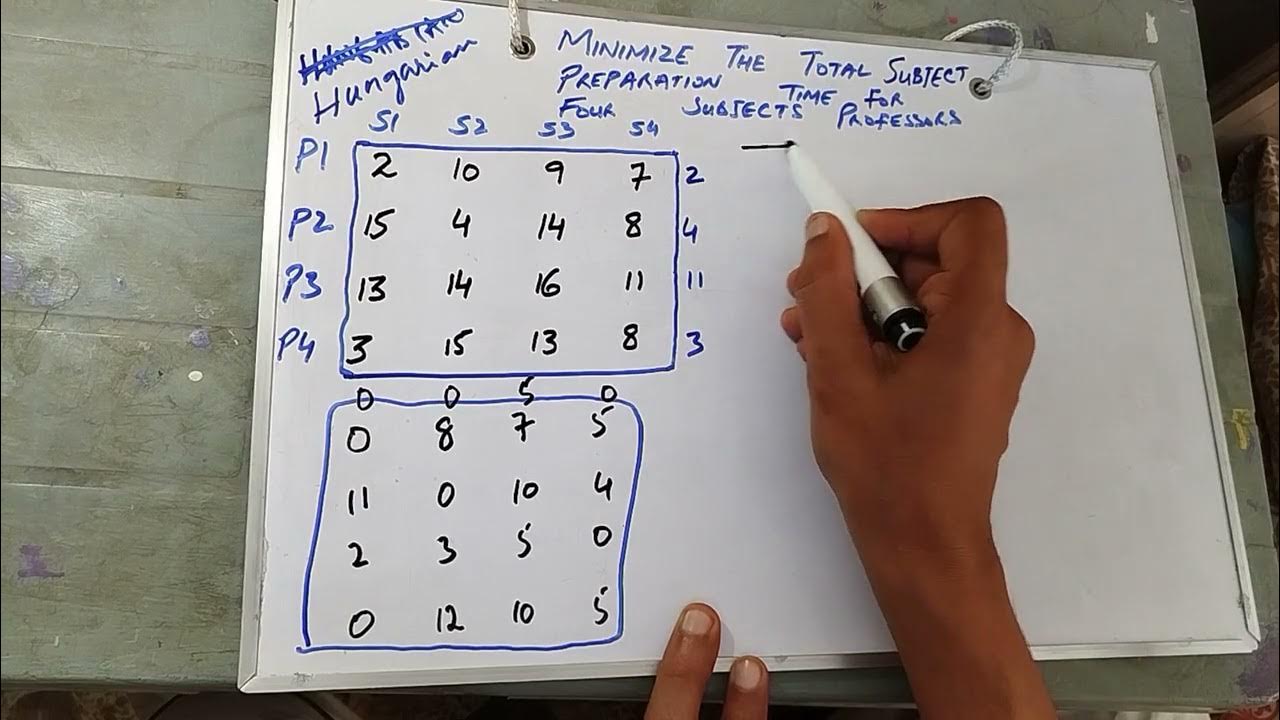 Hungarian
MINIMIZE THE TOTAL SUBJECT
PREPARATION TIME FOR
FOUR SUBJECTS PROFESSORS
S1 S2 S3 S4
P1 2 10 9 7 2
P2 15 4 14 8 4
P3 13 14 16 11 11
P4 3 15 13 8 3
0 0 5 0
0 8 7 5
11 0 10 4
2 3 5 0
0 12 10 5